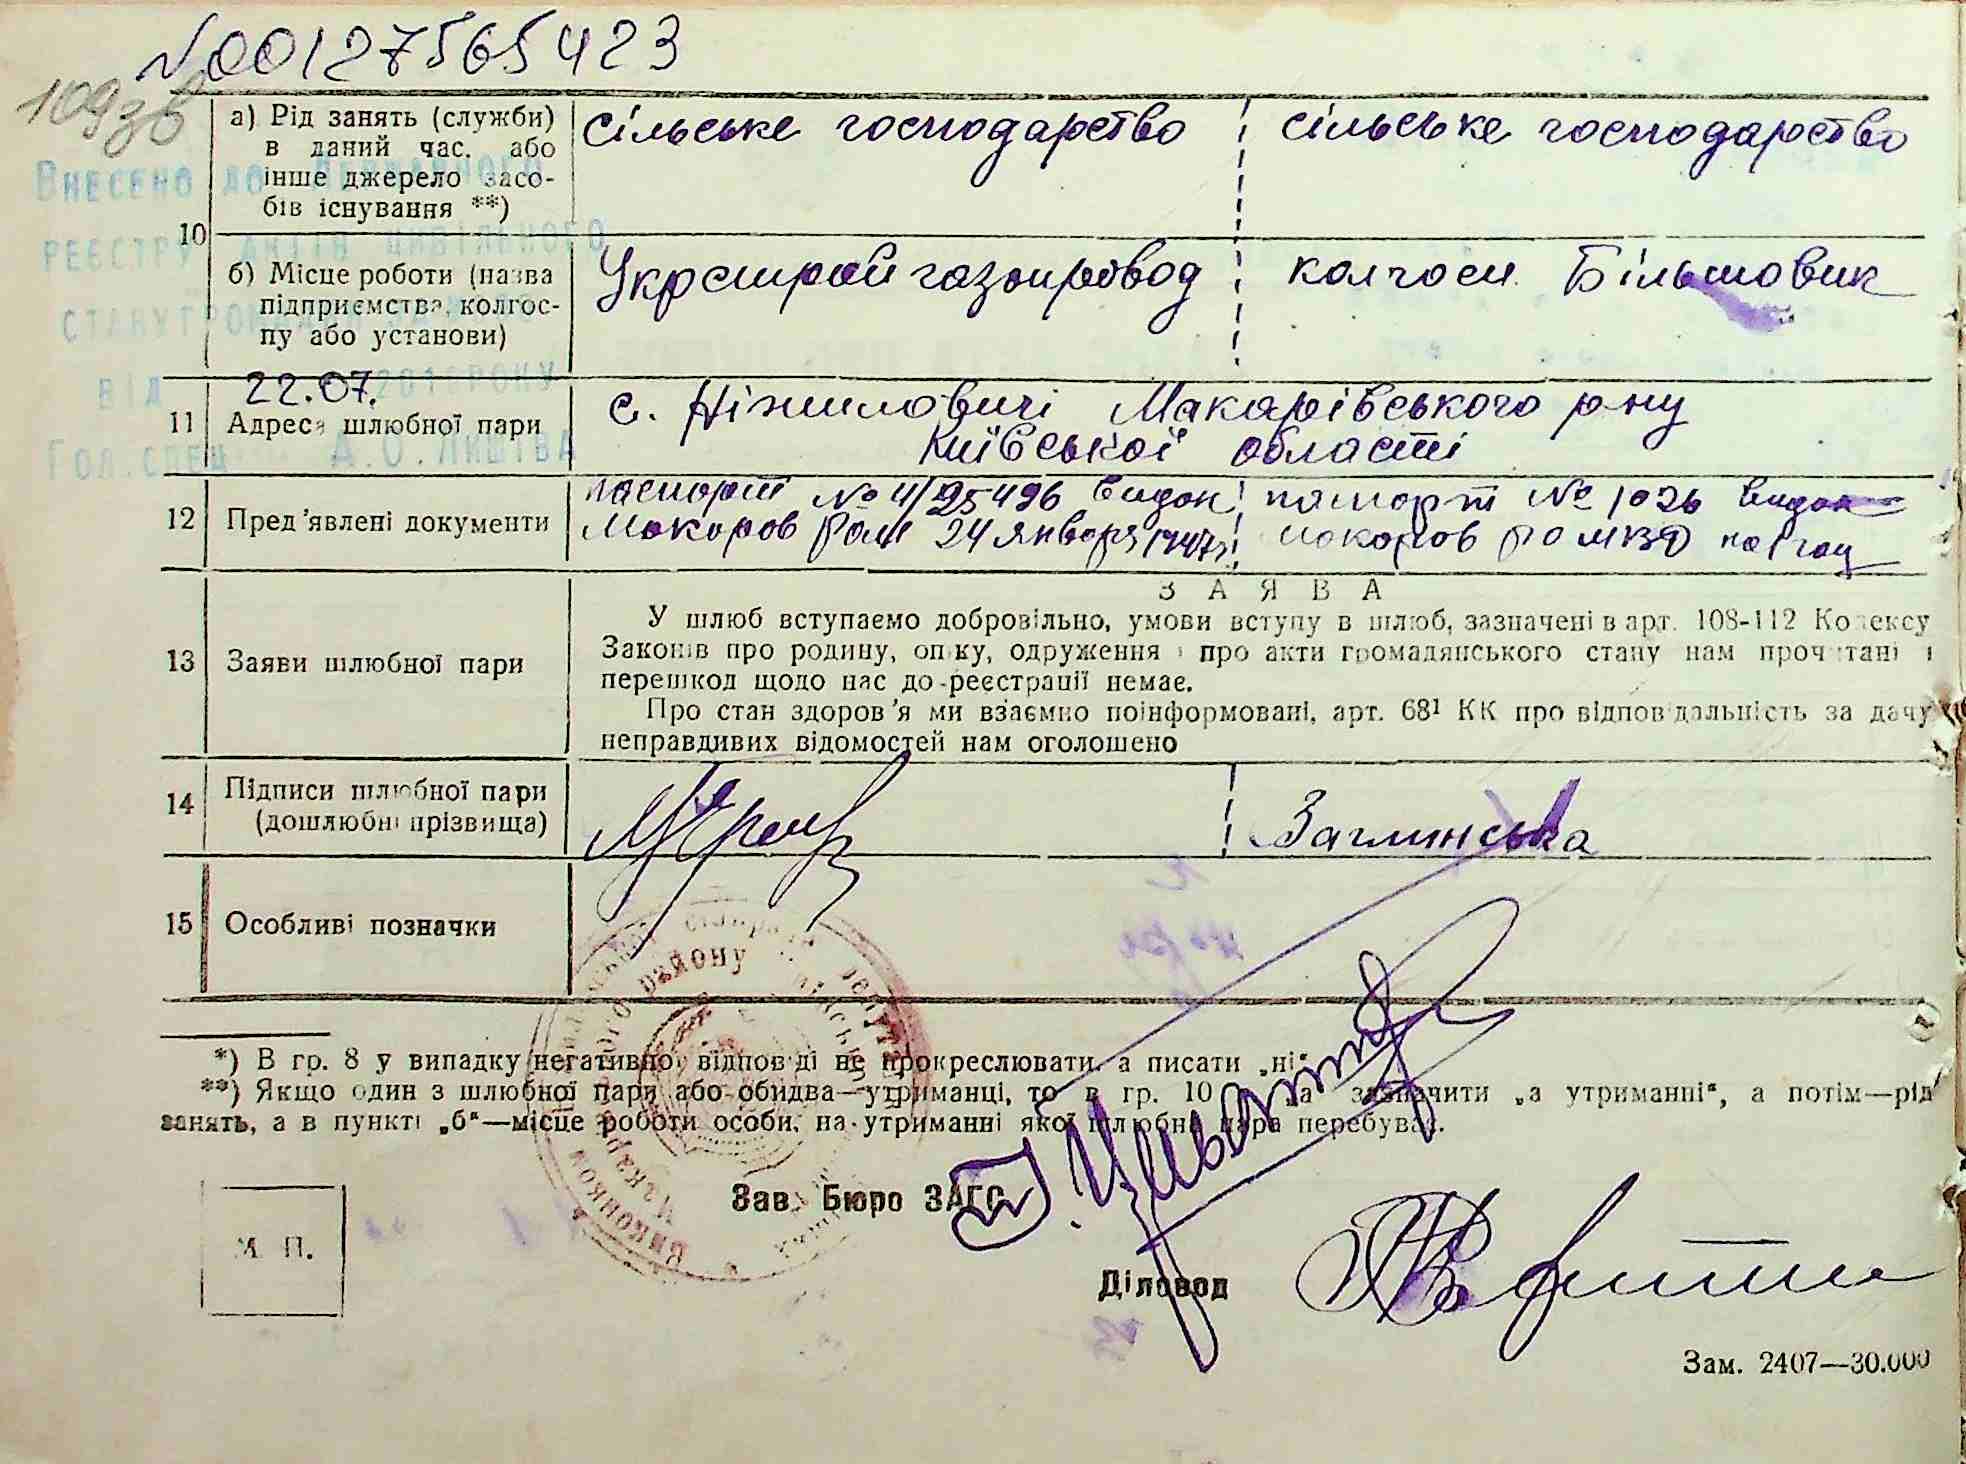 №00127565423
109зв
Внесено до Державного
реєстру актів цивільного
стану громадян
від 22.07.2016 року
Гол. спец А.О. Лиштва
10
а) Рід занять (служби)
в даний час, або
інше джерело засо-
бів існування **)
сільське господарство сільське господарство
б) Місце роботи (назва
підприємства, колгос-
пу або установи)
Укрстройгазопровод колгосп Більшовик
11 Адреса шлюбної пари
с. Ніжиловичі Макарівського р-ну
Київської області
12 Пред'явлені документи
паспорт № 4/95496 видан паспорт № 1026 видан
Макаров 24 января 1947г. Макаров РОМВД на 1 год
З А Я В А
13 Заяви шлюбної пари
У шлюб вступаємо добровільно, умови вступу в шлюб, зазначені в арт. 108-112 Кодексу
Законів про родину, опіку, одруження і про акти громадянського стану нам прочитані і
перешкод щодо нас до реєстрації немає.
Про стан здоров'я ми взаємно поінформовані, арт. 68¹ КК про відповідальність за дачу
неправдивих відомостей нам оголошено
14 Підписи шлюбної пари
(дошлюбні прізвища)
Заглинська
15 Особливі позначки
*) В гр. 8 у випадку негативної відповіді не прокреслювати, а писати „ні“
**) Якщо один з шлюбної пари або обидва—утриманці, то в гр. 10 „а“ зазначити „а утриманні“, а потім—рід
занять, а в пункті „б“—місце роботи особи, на утриманні якої шлюбна пара перебуває.
Зав. Бюро ЗАГС
М. П.
Діловод
Зам. 2407—30.000